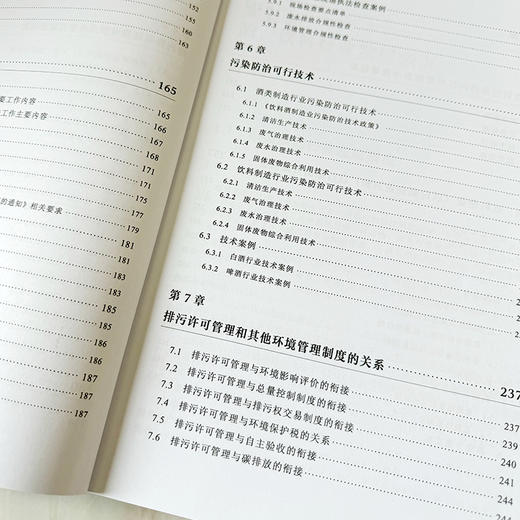 152
155
160
163
165
165
167
168
171
171
177
179
181
181
183
183
185
185
186
186
187
187
187
要工作内容
工作主要内容
的通知》相关要求
执法检查案例
5.9.1 现场检查要点清单
5.9.2 废水排放合规性检查
5.9.3 环境管理合规性检查
第 6 章
污染防治可行技术
6.1 酒类制造行业污染防治可行技术
6.1.1 《饮料酒制造业污染防治技术政策》
6.1.2 清洁生产技术
6.1.3 废气治理技术
6.1.4 废水治理技术
6.1.5 固体废物综合利用技术
6.2 饮料制造行业污染防治可行技术
6.2.1 清洁生产技术
6.2.2 废气治理技术
6.2.3 废水治理技术
6.2.4 固体废物综合利用技术
6.3 技术案例
6.3.1 白酒行业技术案例
6.3.2 啤酒行业技术案例
第 7 章
排污许可管理和其他环境管理制度的关系 237
7.1 排污许可管理与环境影响评价的衔接 237
7.2 排污许可管理与总量控制制度的衔接 239
7.3 排污许可管理与排污权交易制度的衔接 240
7.4 排污许可管理与环境保护税的关系 241
7.5 排污许可管理与自主验收的衔接 244
7.6 排污许可管理与碳排放的衔接 244